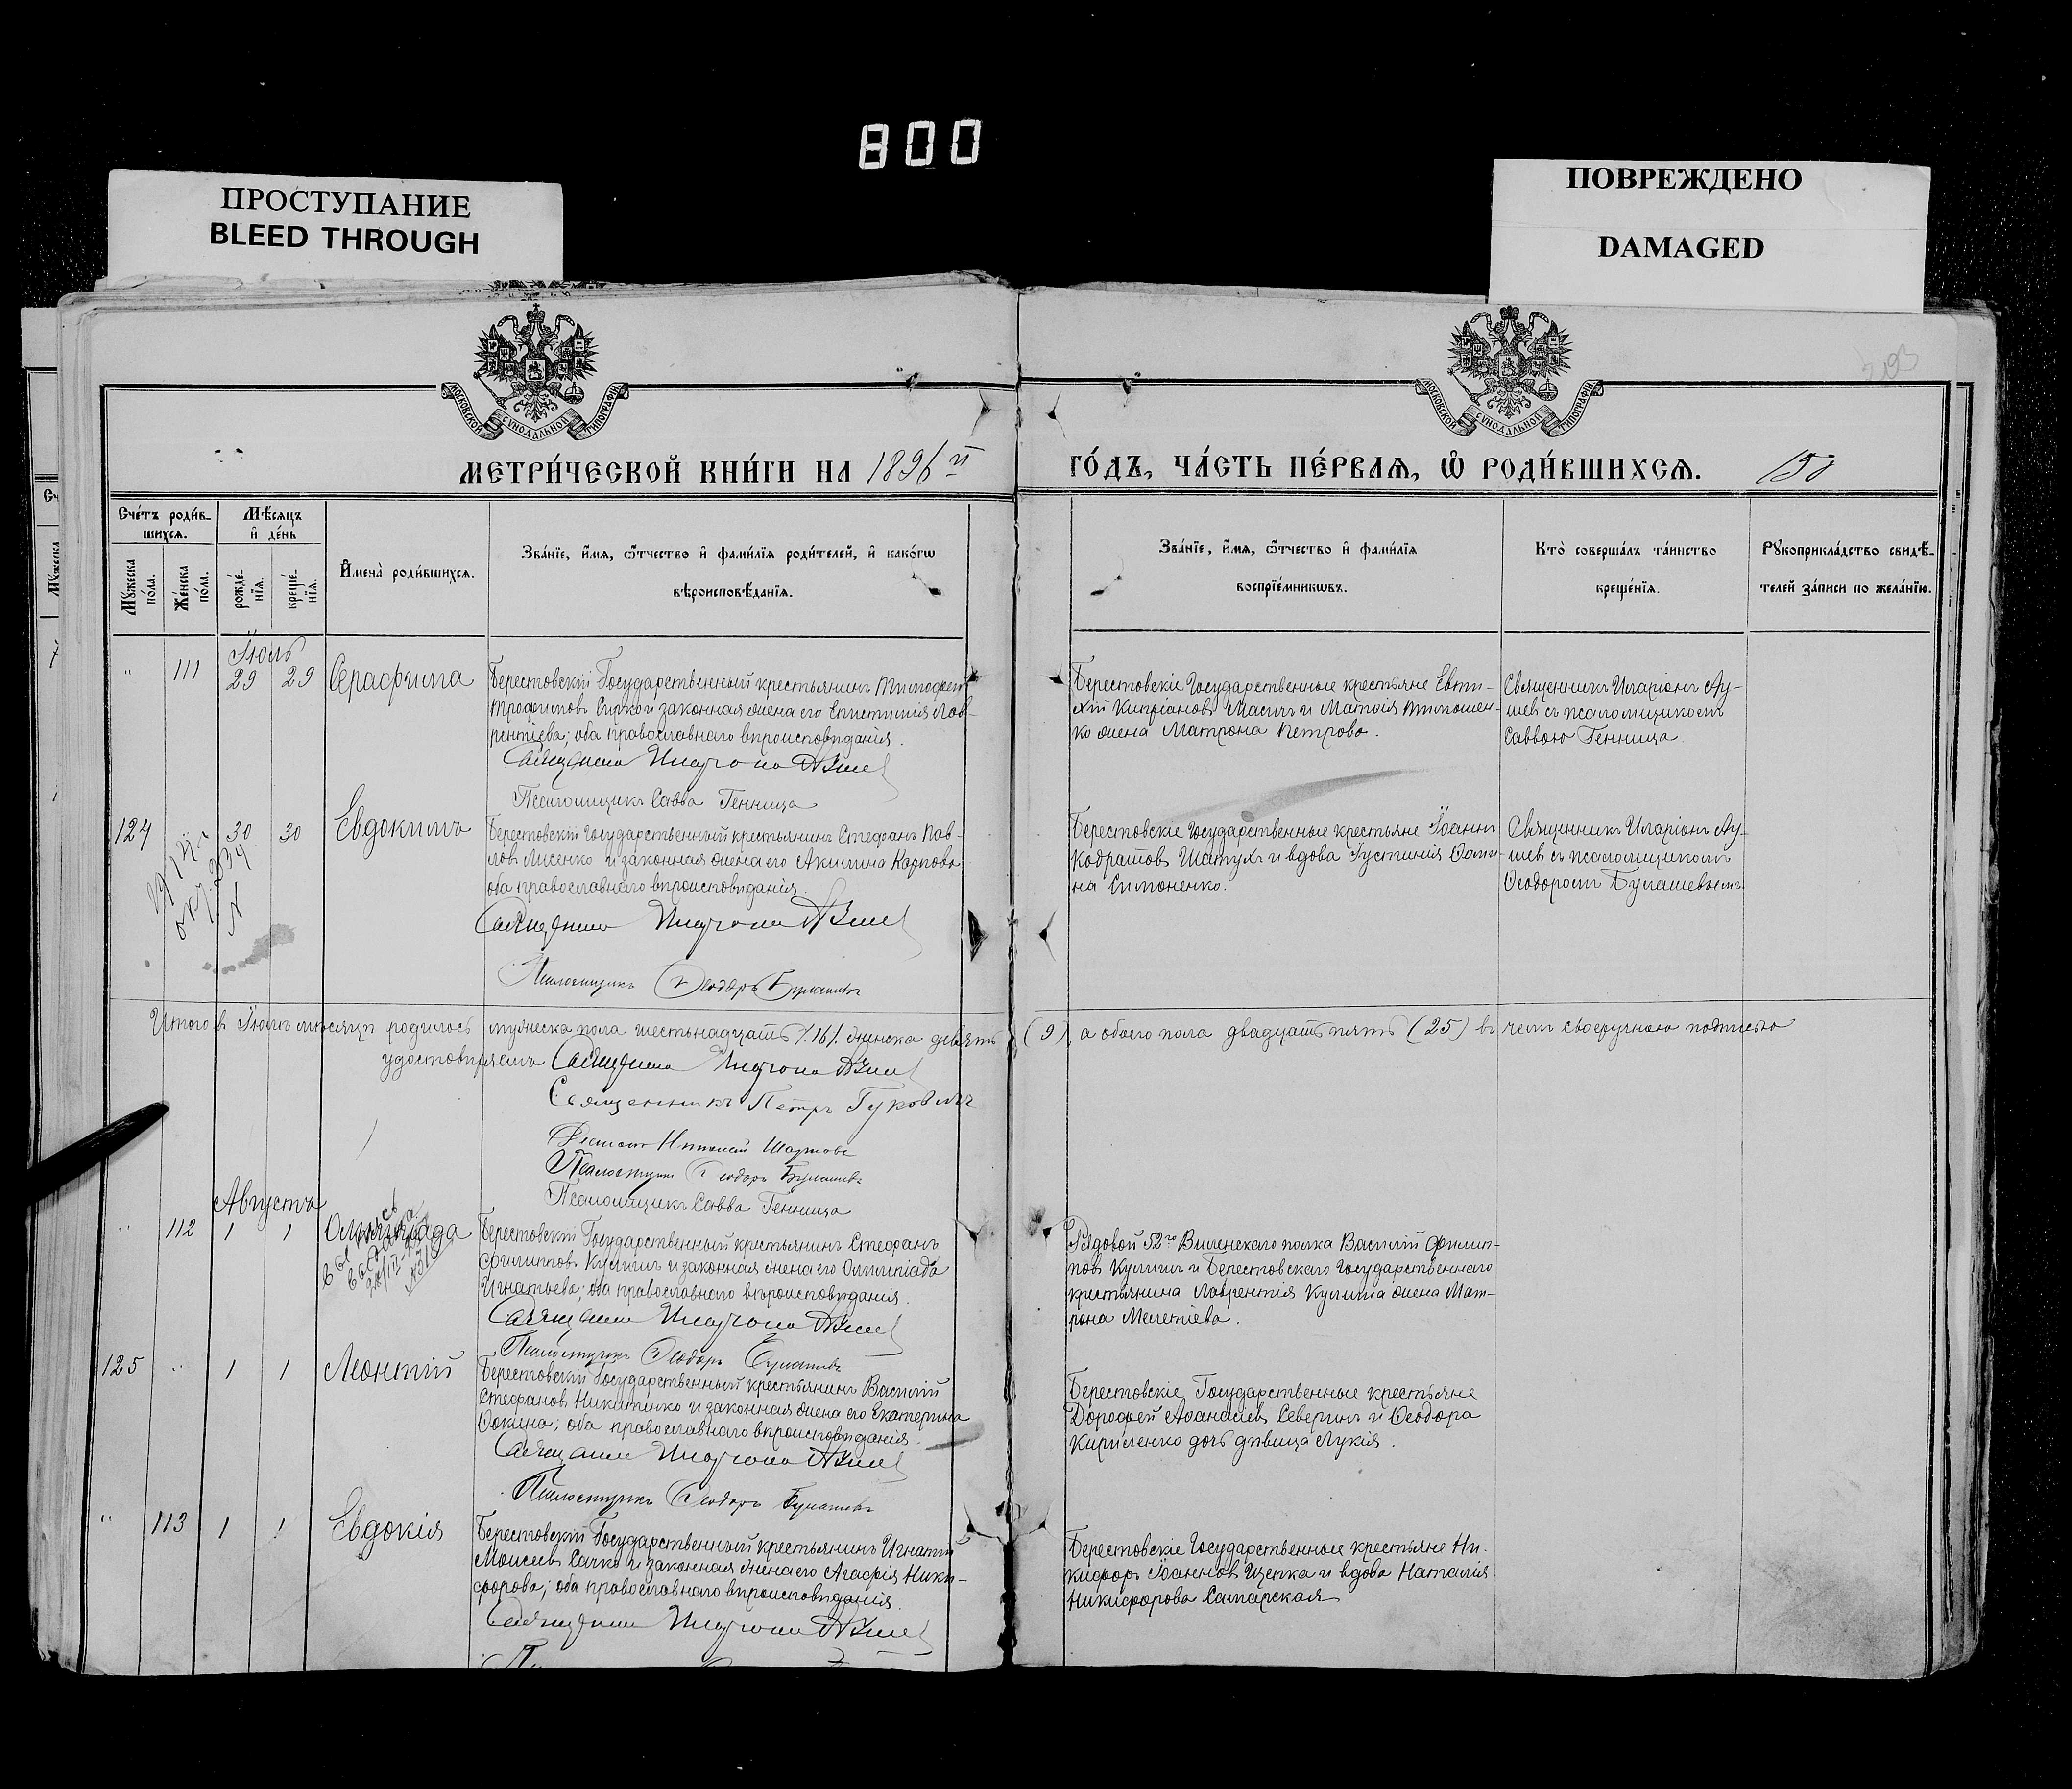 800
ПРОСТУПАНИЕ
BLEED THROUGH
ПОВРЕЖДЕНО
DAMAGED
МОСКОВСКОЙ СѴНОДАЛЬНОЙ ТИПОГРАФІИ
МОСКОВСКОЙ СѴНОДАЛЬНОЙ ТИПОГРАФІИ
МЕТРИ́ЧЕСКОЙ КНИ́ГИ НА 1896 й
ГО́ДЪ, ЧА́СТЬ ПЕ́РВАЯ, Ѡ҆ РОДИ́ВШИХСЯ. 150
Сче́тъ роди́в-
шихся.
Мѣ́сяцъ
и҆ де́нь
И҆мена̀ роди́вшихся.
Зва́нїе, и҆́мя, ѻ҆́тчество и҆ фами́лїя роди́телей, и҆ како́гѡ
вѣроисповѣ́данїя.
Мꙋ́жеска
по́ла.
Же́нска
по́ла.
рожде́-
нїя.
креще́-
нїя.
Зва́нїе, и҆́мя, ѻ҆́тчество и҆ фами́лїя
воспрїе́мникѡвъ.
Кто̀ соверша́лъ та́инство
креще́нїя.
Рꙋкоприкла́дство свидѣ́-
телей за́писи по жела́нїю.
Іюль
" 111 29 29 Серафима
Берестовскій Государственный крестьянинъ Тимофей
Трофимовъ Сирко и законная жена его Епистимія Лав-
рентіева; оба православнаго вѣроисповѣданія.
Священникъ Иларіонъ
Псаломщикъ Савва Генница
Берестовскіе Государственные крестьяне Евти-
хій Кипріановъ Масичъ и Матвія Тимошен-
ко жена Матрона Петрова.
Священникъ Иларіонъ Ау-
шев съ псаломщикомъ
Саввою Генница.
124 30 30 Евдокимъ
Берестовскій Государственный крестьянинъ Стефанъ Пав-
ловъ Лисенко и законная жена его Акилина Карпова
оба православнаго вѣроисповѣданія.
Священникъ Иларіонъ
Псаломщикъ Ѳеодоръ Булашевъ
Берестовскіе Государственные крестьяне Іоаннъ
Кодратовъ Шатухъ и вдова Іустинія Ѳоми-
на Симоненко.
Священникъ Иларіонъ Ау-
шев съ псаломщикомъ
Ѳеодоромъ Булашевымъ
Итого въ Іюлѣ мѣсяцѣ родилось мужеска пола шестьнадцать /.16/. женска девять (9), а обоего пола двадцать пять (25) въ чемъ своеручною подписью
удостовѣряемъ Священникъ Иларіонъ
Священникъ Петръ Гуковичъ
Псаломщикъ Ѳеодоръ Булашевъ
Псаломщикъ Савва Генница
Августъ
" 112 1 1 Олимпіада
Выпись
выдана
Берестовскій Государственный крестьянинъ Стефанъ
Филиповъ Кулишъ и законная жена его Олимпіада
Игнатьева; оба православнаго вѣроисповѣданія.
Священникъ Иларіонъ
Псаломщикъ Ѳеодоръ Булашевъ
Рядовой 52го Виленскаго полка Василій Филип-
повъ Кулишъ и Берестовскаго Государственнаго
крестьянина Лаврентія Кулиша жена Мат-
рона Мелетіева.
125 " 1 1 Леонтій
Берестовскій Государственный крестьянинъ Василій
Стефановъ Никитенко и законная жена его Екатерина
Ѳокина; оба православнаго вѣроисповѣданія.
Священникъ Иларіонъ
Псаломщикъ Ѳеодоръ Булашевъ
Берестовскіе Государственные крестьяне
Дорофей Аѳанасіевъ Северинъ и Ѳеодора
Кириленко дочь дѣвица Лукія.
" 113 1 1 Евдокія
Берестовскій Государственный крестьянинъ Игнатій
Моисеевъ Сачко и законная жена его Агафія Ники-
форова; оба православнаго вѣроисповѣданія.
Священникъ Иларіонъ
Берестовскіе Государственные крестьяне Ни-
кифоръ Іоанновъ Щепка и вдова Наталія
Никифорова Самарская